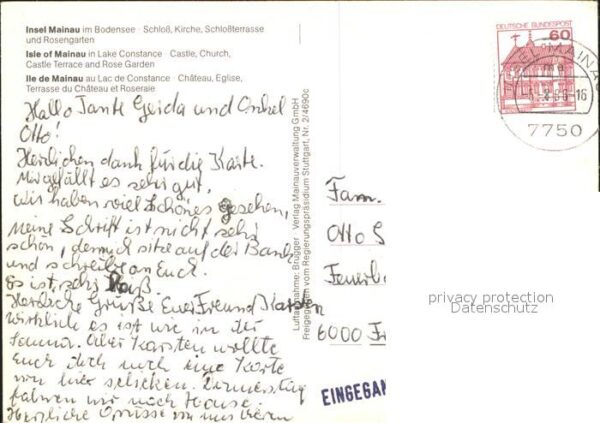 Insel Mainau im Bodensee · Schloß, Kirche, Schloßterrasse
und Rosengarten
Isle of Mainau in Lake Constance · Castle, Church,
Castle Terrace and Rose Garden
Ile de Mainau au Lac de Constance · Château, Eglise,
Terrasse du Château et Roseraie
Hallo Tante Gerda und Onkel
Otto!
Herzlichen dank für die Karte.
Mir gefällt es sehr gut,
wir haben viel Schönes gesehen,
meine Schrift ist nicht sehr
schön, denn ich sitze auf der Bank
und schreibe an Euch.
Es ist sehr heiß.
Herzliche Grüße Euer Freund Karsten
wirklich es ist wie in der
Sauna. Aber Karsten wollte
Euch doch noch eine Karte
von hier schicken. Donnerstag
fahren wir nach Hause.
Herzliche Grüsse von uns Vieren
Luftaufnahme: Brugger · Verlag Mainauverwaltung GmbH
Freigegeben vom Regierungspräsidium Stuttgart, Nr. 2/4690c
DEUTSCHE BUNDESPOST
60
INSEL MAINAU
-16
7750
Fam.
Otto S
Feuerb
6000 Fr
EINGEGAN
privacy protection
Datenschutz